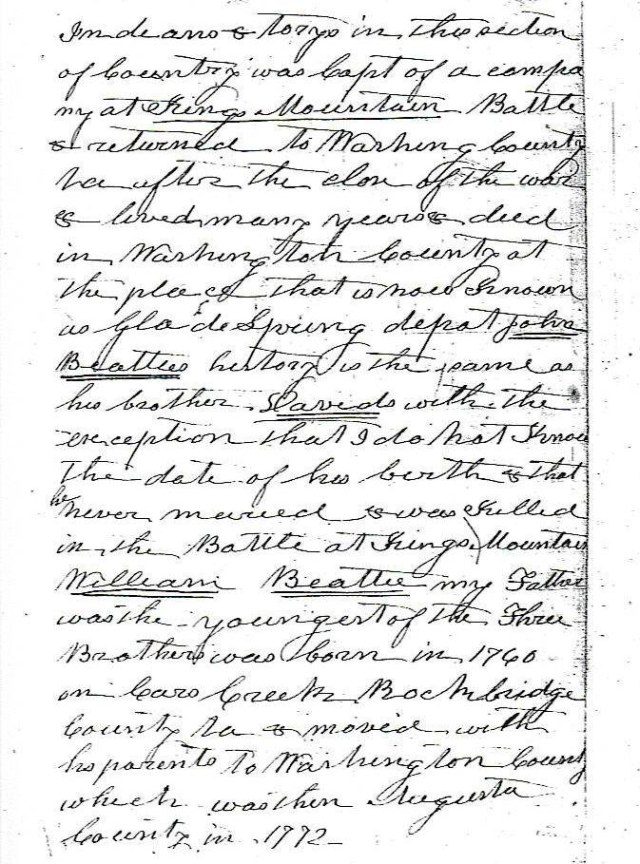 Indeans & torys in this section
of Country was Capt of a compa
ny at Kings Mountain Battle
& returned to Washing County
Va after the close of the war
& lived many years & died
in Washington County at
the place that is now Known
as Glade Spring depot John
Beatties history is the same as
his brother Davids with the
exception that I do not Know
the date of his birth & that
he never maried & was Killed
in the Battle at Kings Mountain
William Beattie my Father
was the youngest of the Three
Brothers was born in 1760
on Cars Creek Rockbridge
County Va & moved with
his parents to Washington County
which was then Augusta
County in 1772